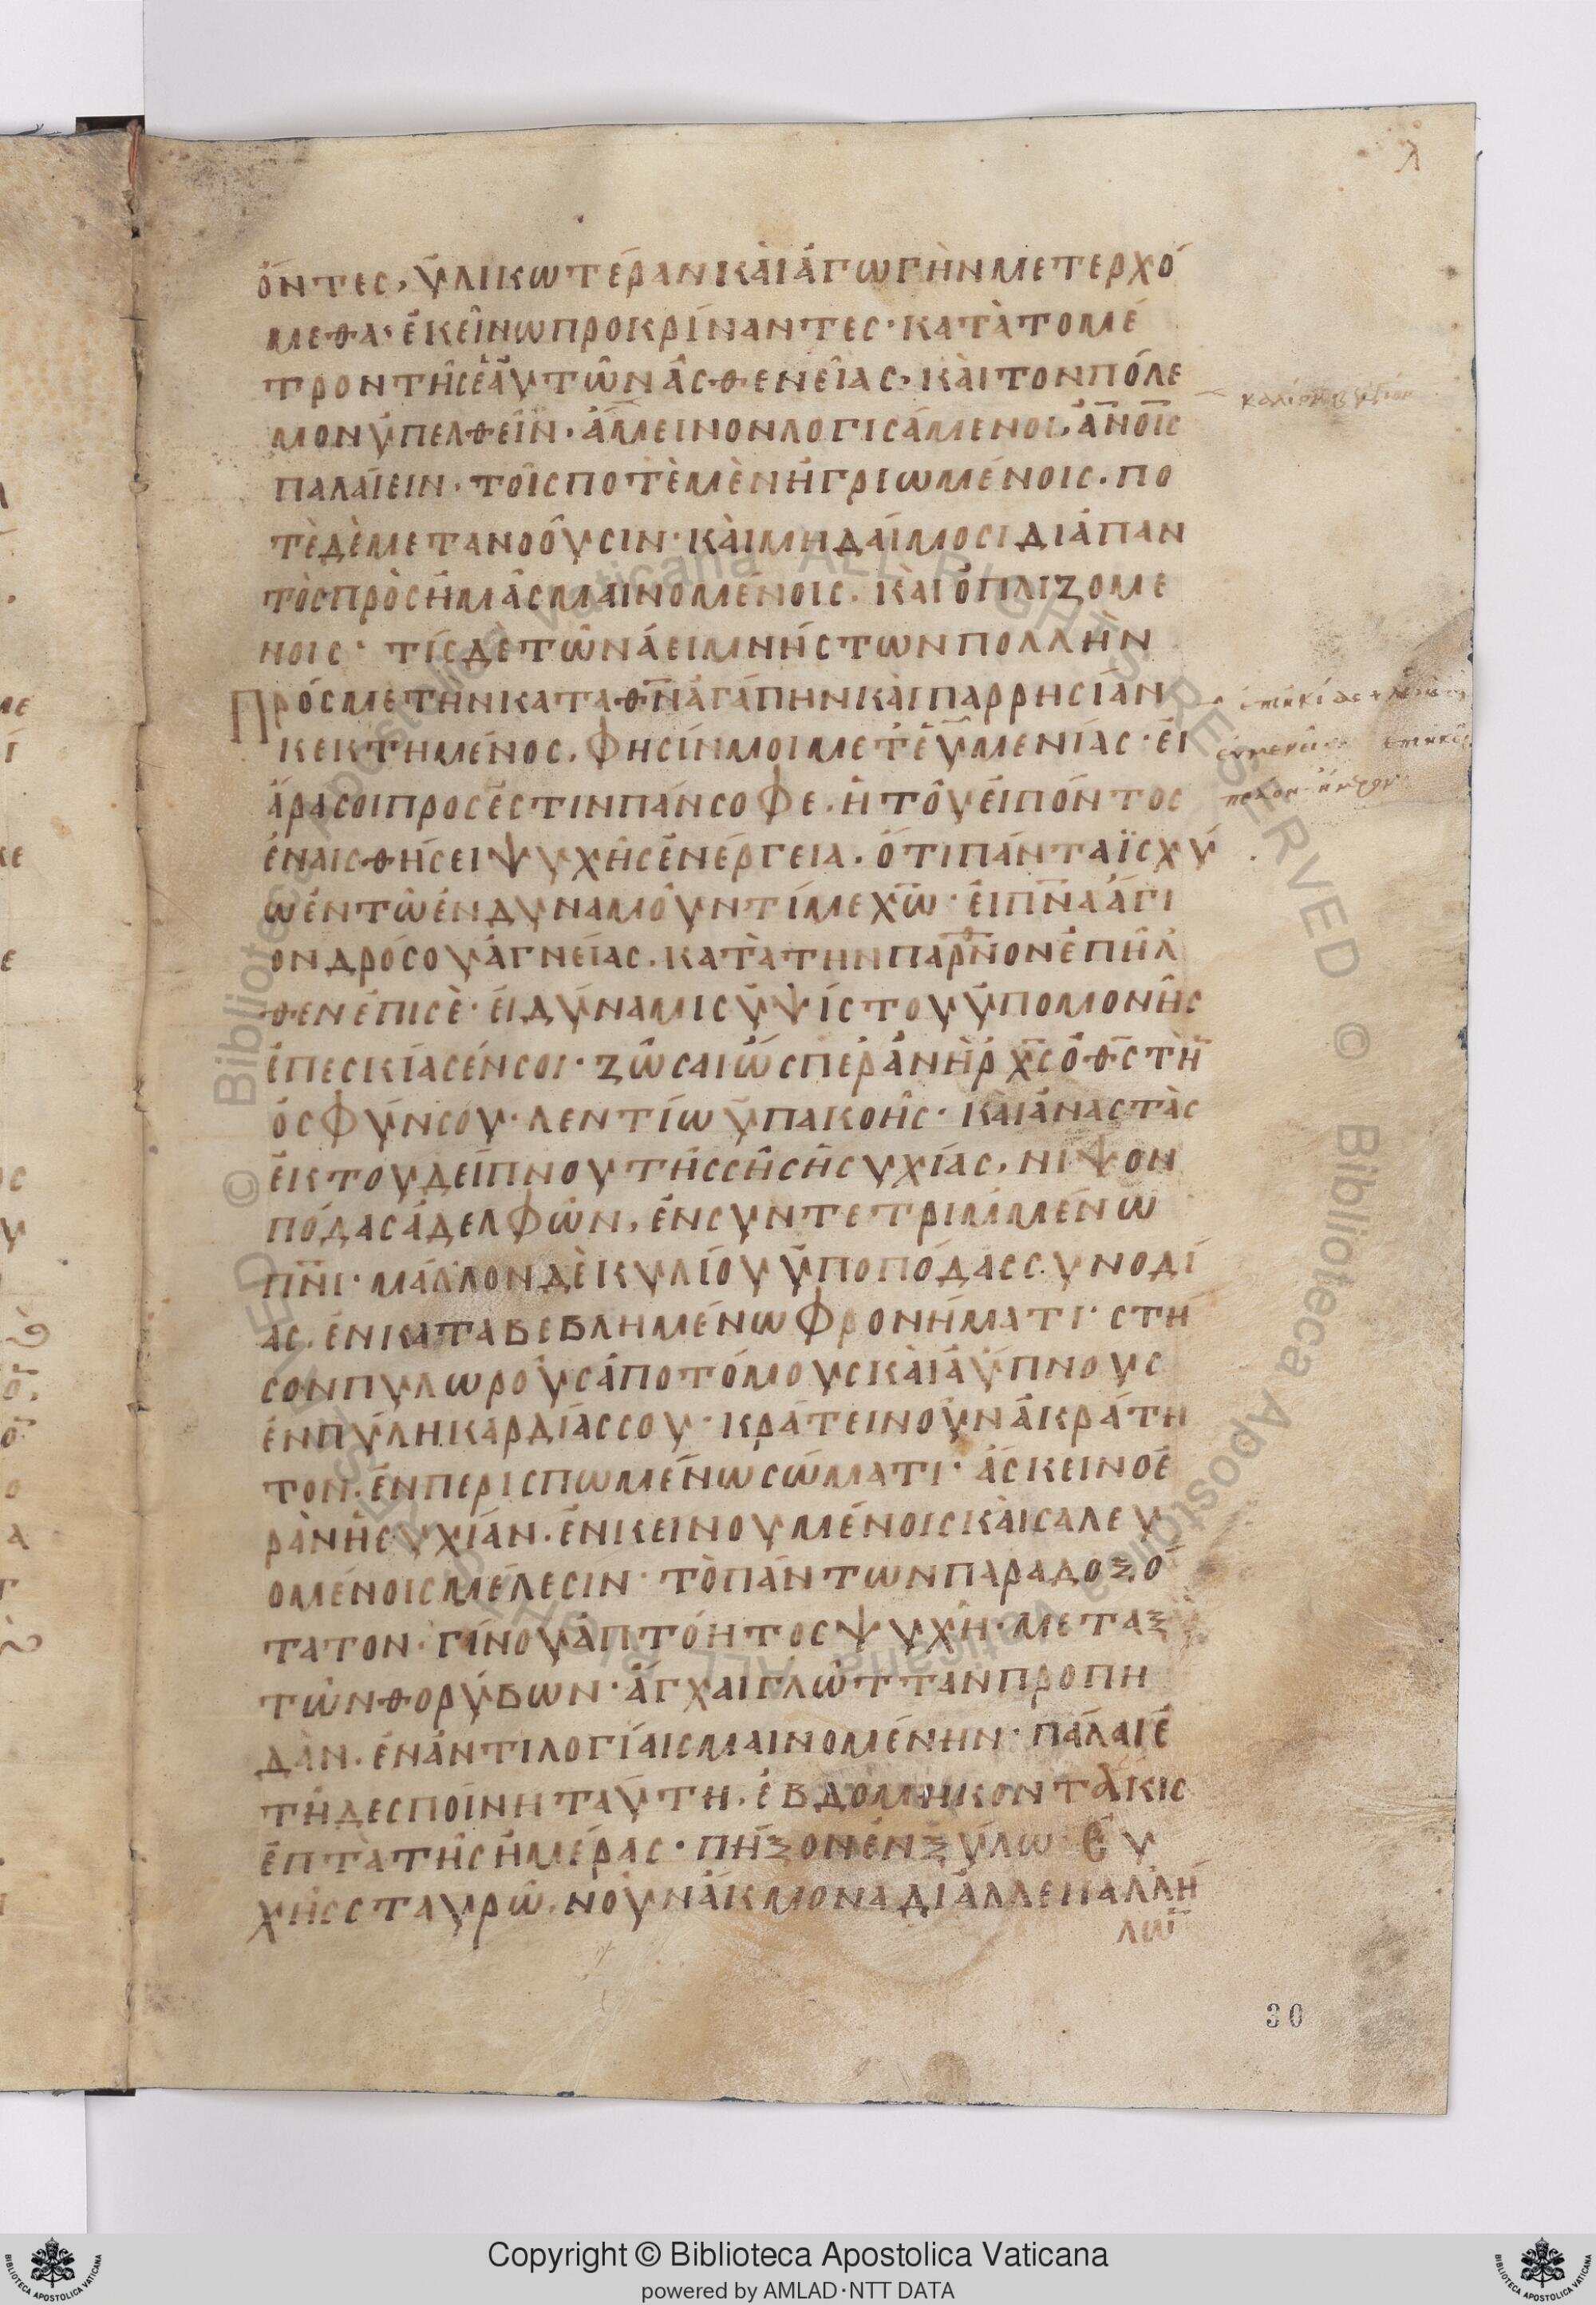 λ
ὄντες, ὑλικωτέραν καὶ ἀγωγὴν μετερχό
μεθα· ἐκεῖνω προκρίναντες· κατὰ το μέ
τρον τῆς ἑαυτῶν ἀσθενείας, καὶ τον πόλε
μον ὑπελθεῖν· ἄμεινον λογισάμενοι, ἀ̅ν̅οις
παλαίειν· τοῖς ποτὲ μὲν ἠγριωμένοις· πο
τὲ δὲ μετανοοῦσιν· καὶ μη δαίμοσι διάπαν
τὸς πρὸς ἡμᾶς μαινομένοις· καὶ ὁπλιζομέ
νοις· τίς δὲ τῶν ἀειμνήστων πολλὴν
Πρός με την κατα θ̅ν̅ ἀγάπην καὶ παρρησίαν
κεκτημένος, φησίν μοι μετ' εὐμενίας· εἰ
ἄρα σοι προσἔστιν πάνσοφε· ἡ τοῦ εἰπόντος
ἐν αἰσθήσει ψυχῆς ἐνέργεια· ὅτι πάντα ἰσχύ
ω ἐν τῶ ἐνδυναμοῦντί με χ̅ω̅· εἰ π̅ν̅α̅ ἅγι
ον δρόσου ἁγνείας· κατὰ την παρ̅ν̅ον ἐπῆλ
θεν ἐπι σὲ· εἰ δύναμις ὑψίστου ὑπομονῆς
ἐπεσκίασέν σοι· ζῶσαι ὥσπερ ἀνὴρ χ̅ς̅ ὁ θ̅ς̅ τὴ̅
ὀσφύν σου· λεντίω ὑπακοῆς· καὶ ἀναστὰς
ἐκ του δείπνου τῆς σῆς ἡσυχίας, νιψον
πόδας ἀδελφῶν, ἐν συντετριμμένω
π̅ν̅ι̅· μᾶλλον δὲ κυλίου ὑπο πόδας συνοδί
ας· ἐν καταβεβλημένω φρονήματι· στή
σον πυλωροὺς ἀποτόμους καὶ ἀΰπνους
ἐν πύλη καρδίας σου· κράτει νοῦν ἀκράτη
τον· ἐν περισπωμένω σώματι· ἄσκει νοε
ρὰν ἡσυχίαν· ἐν κεινουμένοις καὶ σαλευ
ομένοις μέλεσιν· τὸ πάντων παραδοξό
τατον· γίνου ἀπτόητος ψυχῆ· μεταξὺ
τῶν θορύβων· ἄγχαι γλῶτταν προπη
δὰν· ἐν ἀντιλογίαις μαινομένην· πάλαιε
τῆ δεσποίνη ταύτη· ἑβδομηκοντάκις
ἑπτὰ τῆς ἡμέρας· πῆξον ἐν ξύλω ψυ
χῆς σταυρῶ· νοῦν ἄκμονα δι ἀλλεπαλλή
λω̅
30
Copyright © Biblioteca Apostolica Vaticana
powered by AMLAD·NTT DATA